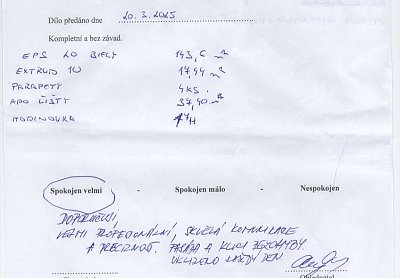 Dílo předáno dne 20. 3. 2025
Kompletní a bez závad.
EPS 20 BIELY 143,6 m²
EXTRUD 10 17,44 m²
PARAPETY 4KS.
APU LIŠTY 37,40
HODINOVKA H
Spokojen velmi - Spokojen málo - Nespokojen
DOPORUČUJI,
VELMI PROFESIONÁLNÍ, SKVĚLÁ KOMUNIKACE
A PRECIZNOST. FASÁDA A KLICI BEZ CHYBY
UKLIZENO KAŽDÝ DEN
Objednatel